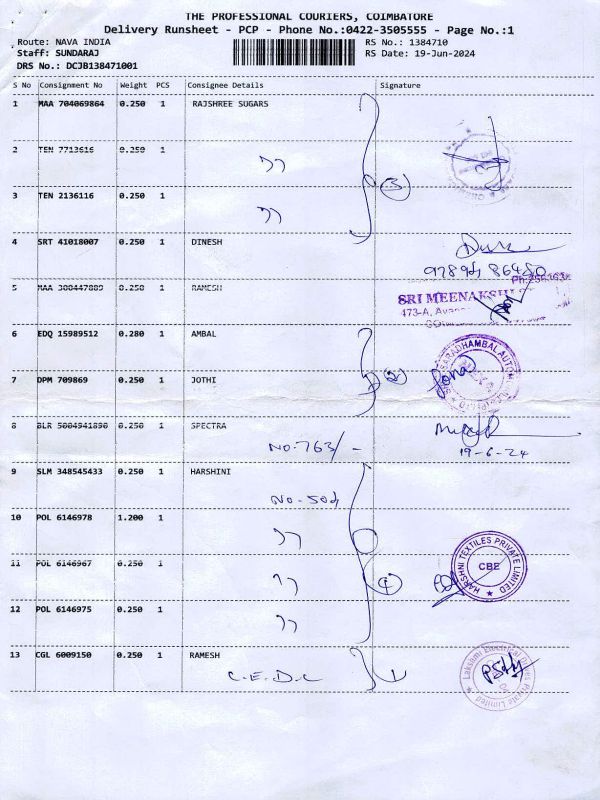 THE PROFESSIONAL COURIERS, COIMBATORE
Delivery Runsheet - PCP - Phone No.:0422-3505555 - Page No.:1
Route: NAVA INDIA RS No.: 1384710
Staff: SUNDARAJ RS Date: 19-Jun-2024
DRS No.: DCJB138471001
S No Consignment No Weight PCS Consignee Details Signature
1 MAA 704069864 0.250 1 RAJSHREE SUGARS
2 TEN 7713616 0.250 1
,,
3 TEN 2136116 0.250 1
,,
3
4 SRT 41018007 0.250 1 DINESH
5 MAA 308447889 0.250 1 RAMESH
SRI MEENAKSHI
473-A,
6 EDQ 15989512 0.280 1 AMBAL
7 DPM 709869 0.250 1 JOTHI
2
8 BLR 5004941890 0.250 1 SPECTRA
NO:763/-
19-6-24
9 SLM 348545433 0.250 1 HARSHINI
10 POL 6146978 1.200 1
,,
11 POL 6146967 0.250 1
,,
12 POL 6146975 0.250 1
,,
HARSHNI TEXTILES PRIVATE LIMITED
CBE
13 CGL 6009150 0.250 1 RAMESH
C.E.D.C
1
Private Limited